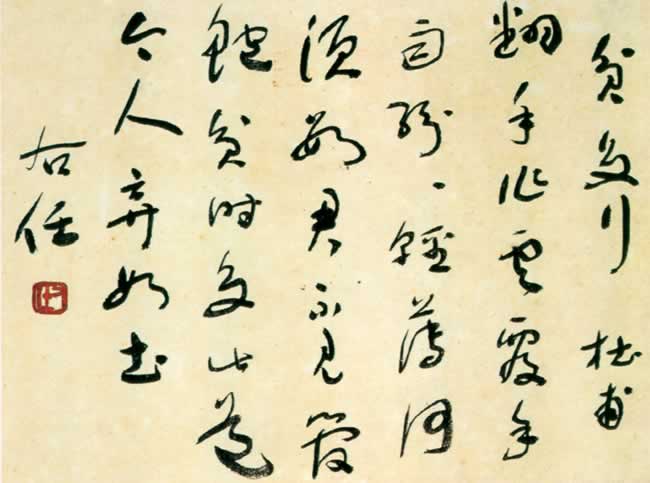 貧交行 杜甫
翻手作雲覆手
雨紛々輕薄何
須數君不見管
鮑貧時交此道
今人棄如土
右任